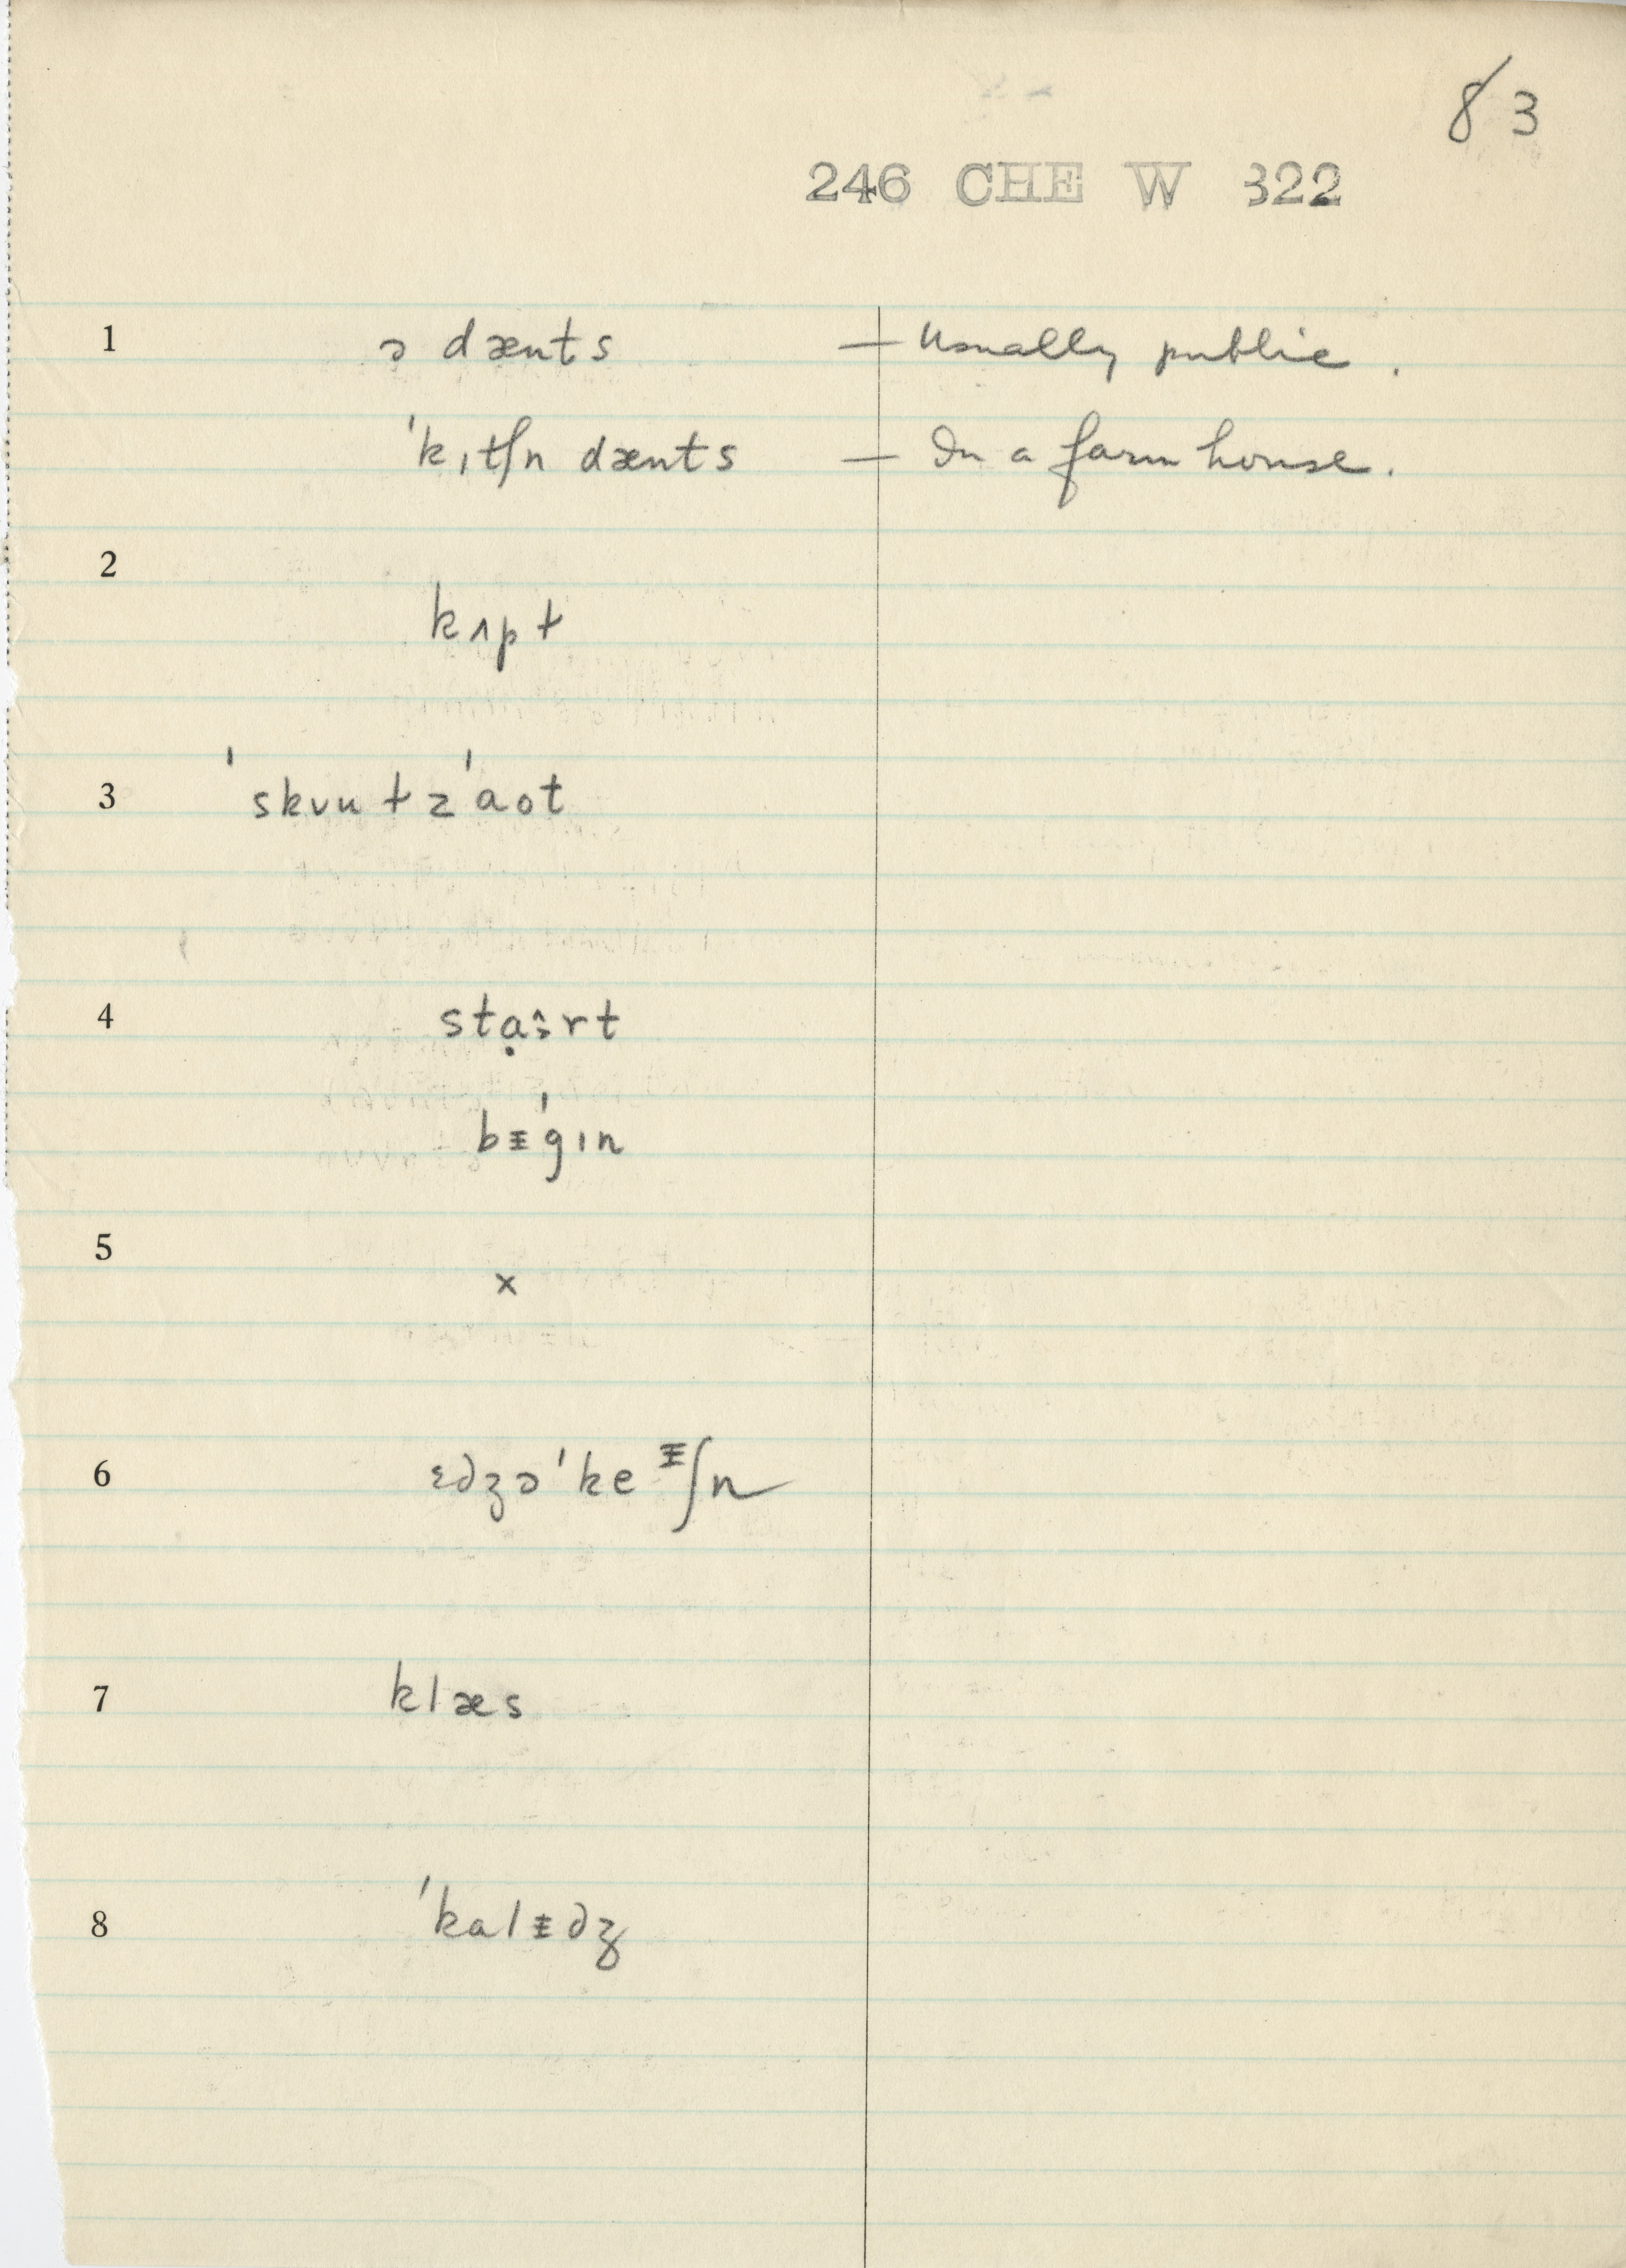 83
246 CHE W 322
1 ə dænts — Usually public.
ˈkɪtʃn dænts — In a farm house.
2 kʌpt
3 ˈskʋntzˈaot
4 stạ:rt
bᵻˈgɪn
5 ×
6 ɛdʒəˈkeᵻʃn
7 klæs
8 ˈkalᵻdʒ